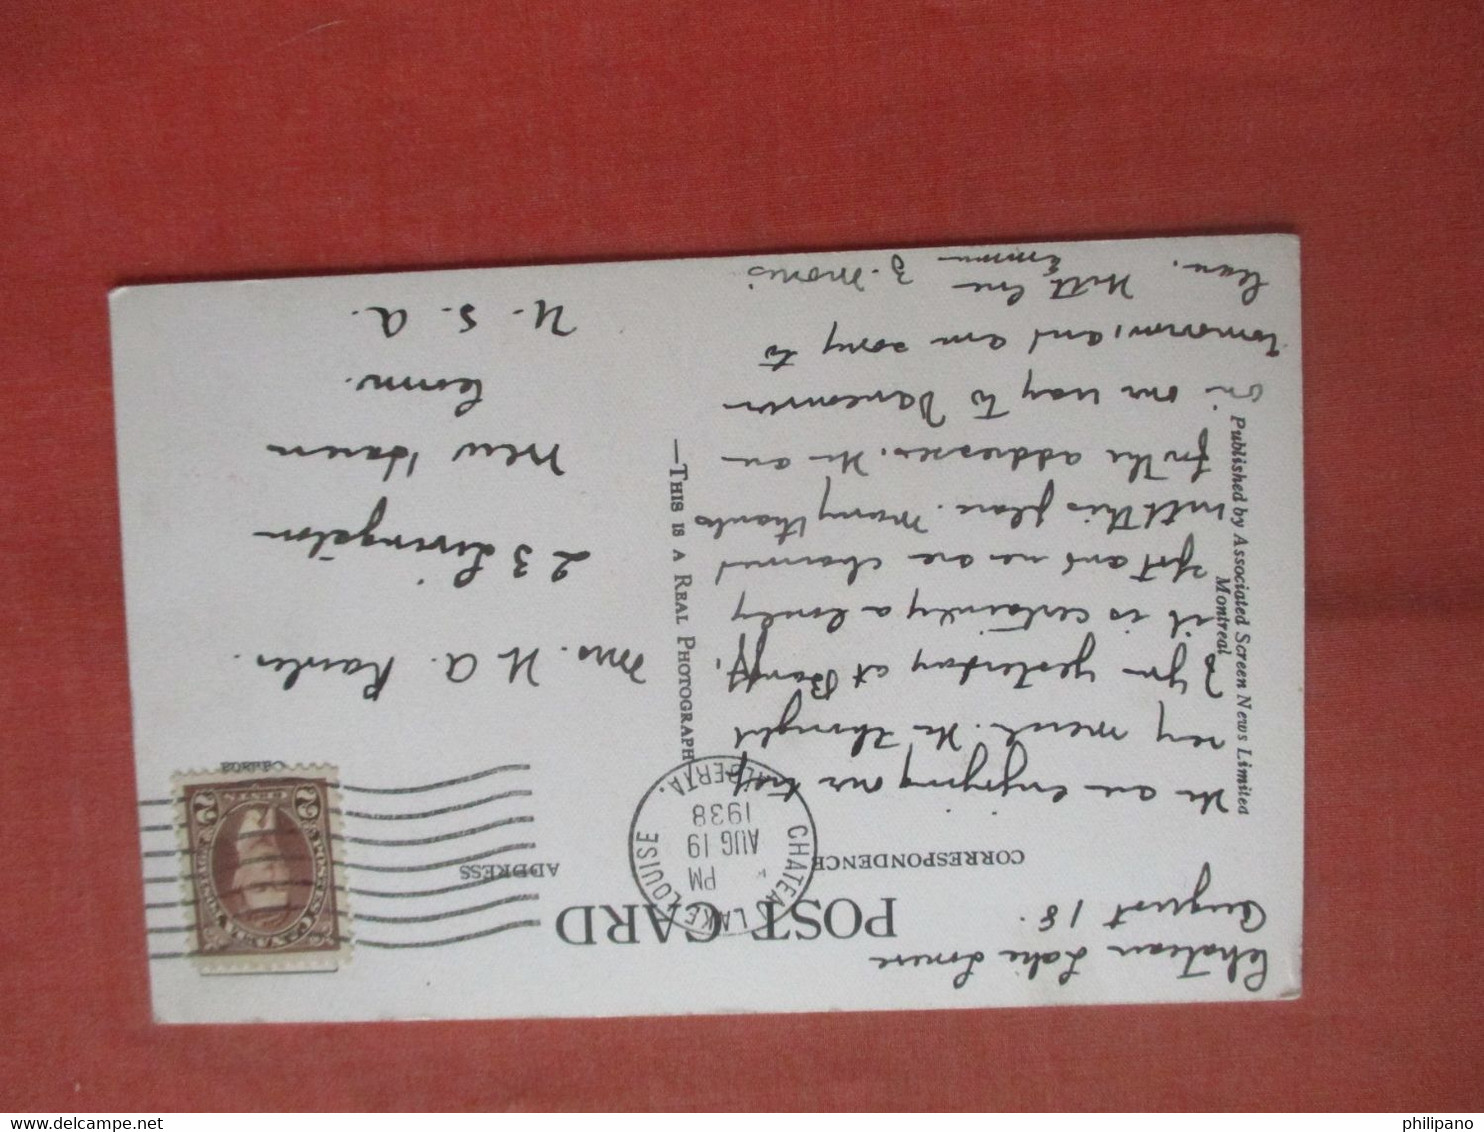 Chateau Lake Louise
August 18.
POST CARD
CORRESPONDENCE
ADDRESS
CHATEAU LAKE LOUISE
PM
AUG 19
1938
ALBERTA.
We are enjoying our trip
very much. We thought
of you yesterday at Banff,
it is certainly a lovely
spot and we are charmed
with this place. Many thanks
for the addresses. We are
on our way to Vancouver
tomorrow and am sorry to
leave. With love
—THIS IS A REAL PHOTOGRAPH
Published by Associated Screen News Limited
Montreal
Canada
POSTES POSTAGE
2 CENTS 2
Mrs. H. A.
23 Livingston
New Haven
Conn.
U. S. A.
philipano